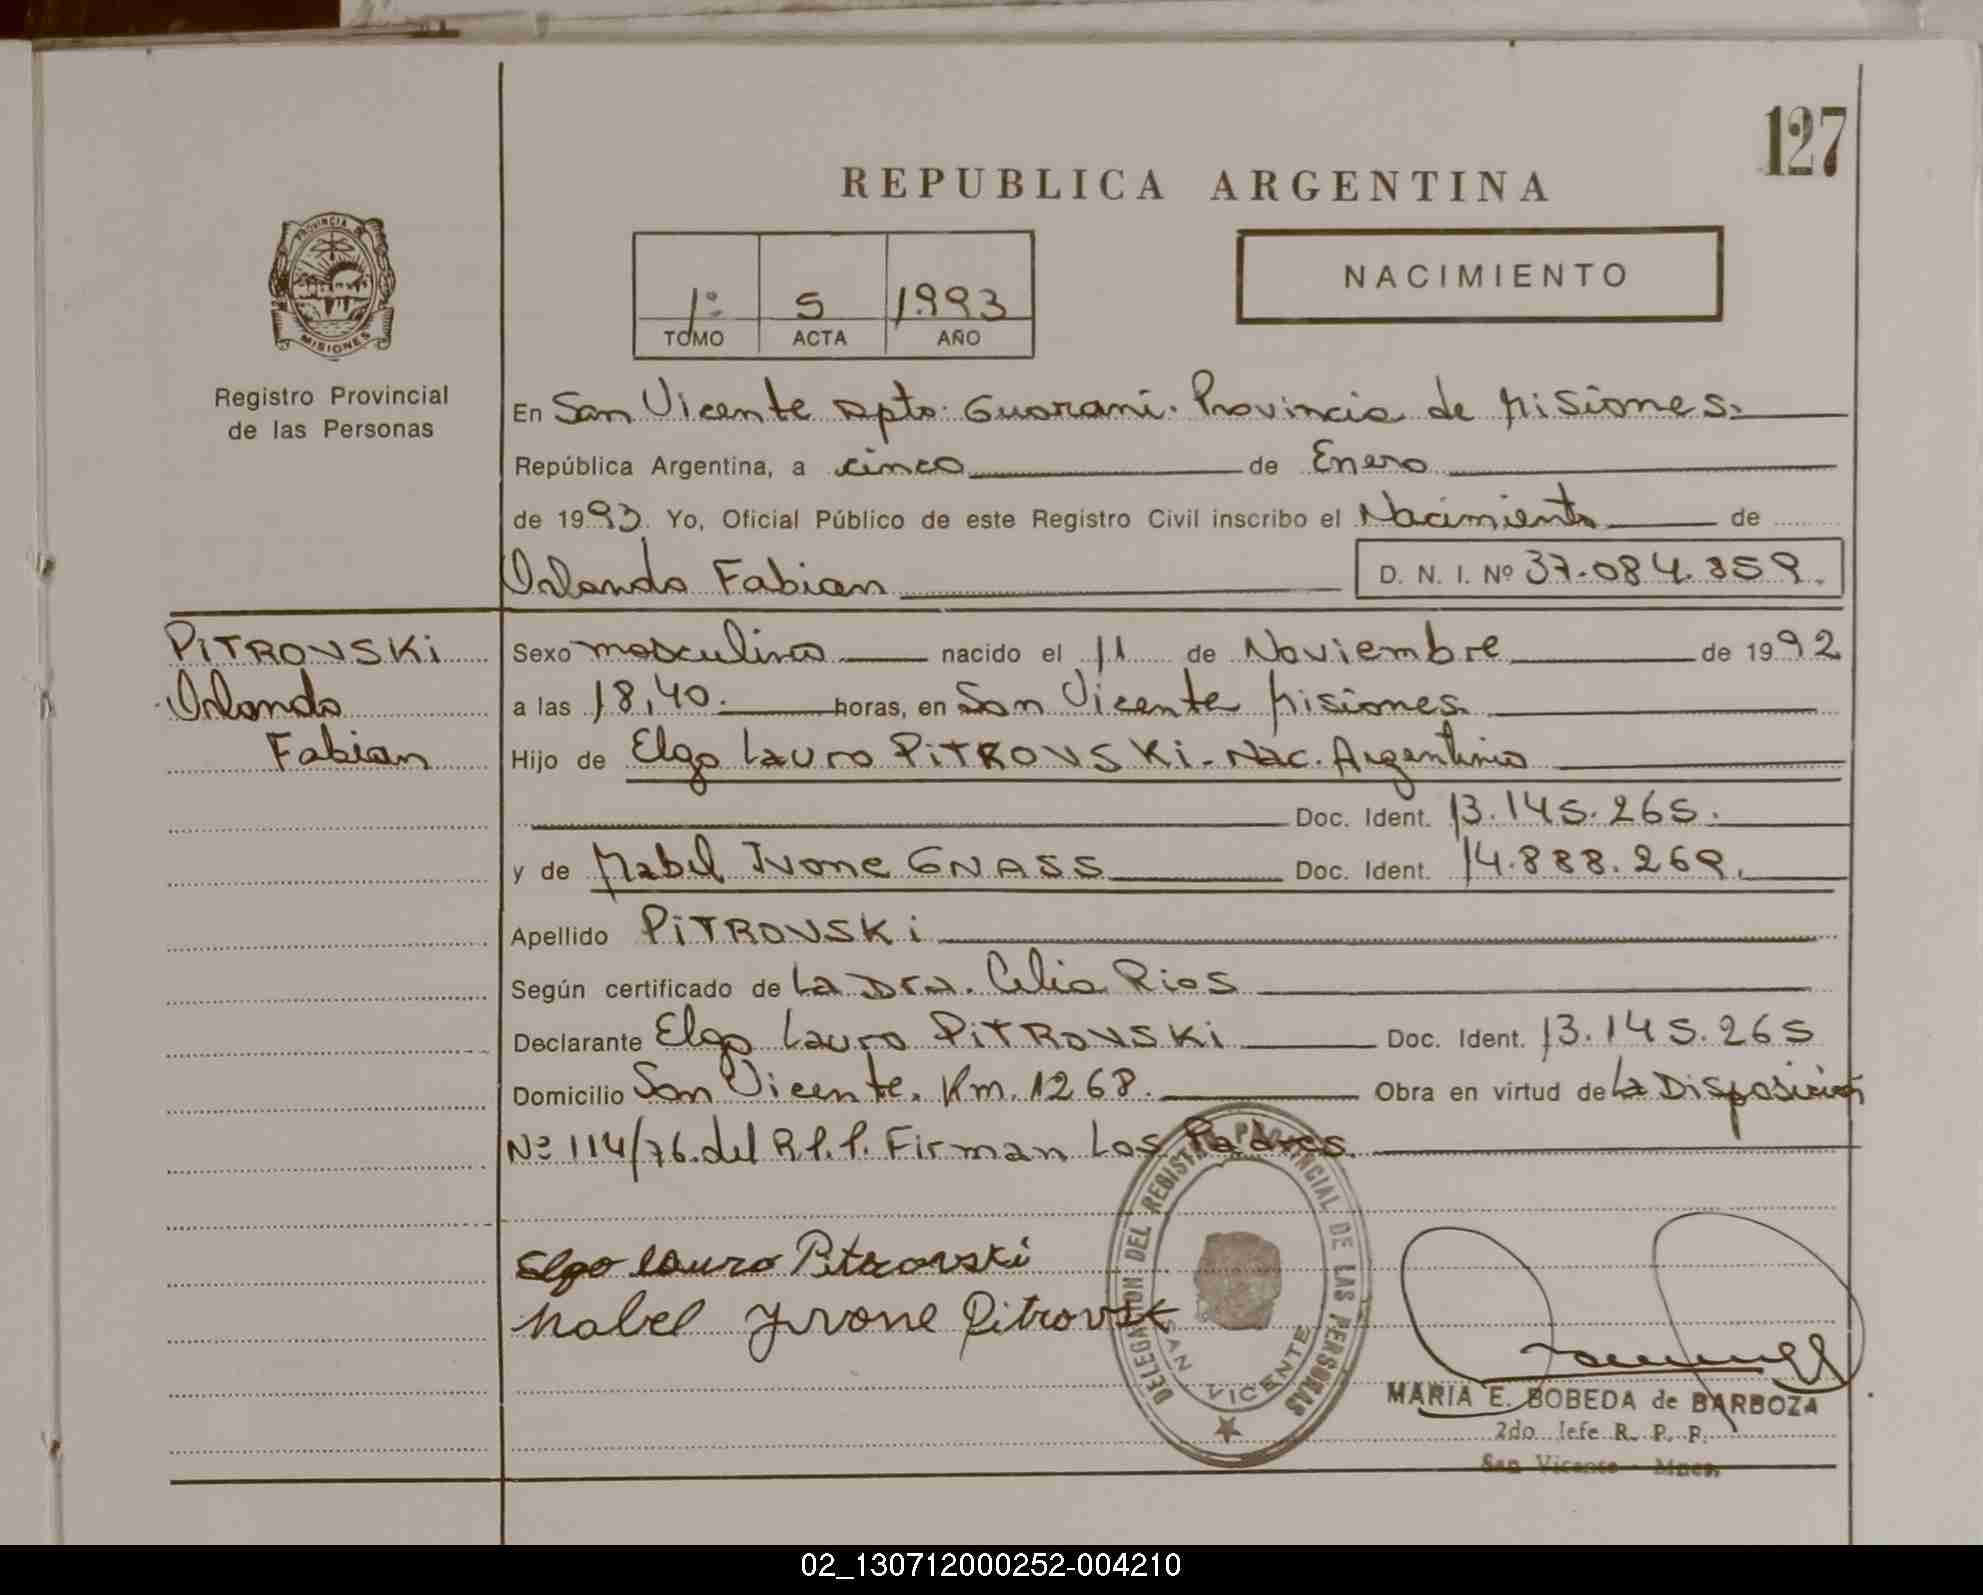 127
REPUBLICA ARGENTINA
PROVINCIA DE
MISIONES
Registro Provincial
de las Personas
1º 5 1.993
TOMO ACTA AÑO
NACIMIENTO
En San Vicente Dpto. Guarani. Provincia de Misiones.
República Argentina, a cinco de Enero
de 1993. Yo, Oficial Público de este Registro Civil inscribo el Nacimiento de
Orlando Fabian D. N. I. Nº 37.084.859.
PiTROVSKi
Orlando
Fabian
Sexo masculino nacido el 11 de Noviembre de 1992
a las 18,40. horas, en San Vicente Misiones.
Hijo de Elgo Lauro PiTROVSKi. Nac. Argentino
Doc. Ident. 13.145.265.
y de Mabel Ivone GNASS Doc. Ident. 14.888.269.
Apellido PiTROVSKi
Según certificado de La Dra. Celia Rios
Declarante Elgo Lauro PiTROVSKi Doc. Ident. 13.145.265
Domicilio San Vicente. Km. 1268. Obra en virtud de La Disposición
Nº 114/76. del R.P.P. Firman Los Padres.
Elgo Lauro Pitrovski
Mabel Yvone Pitrovsk
DELEGACION DEL REGISTRO PROVINCIAL DE LAS PERSONAS
SAN VICENTE
MARIA E. BOBEDA de BARBOZA
2do Jefe R. P. P.
San Vicente - Mnes.
02_130712000252-004210